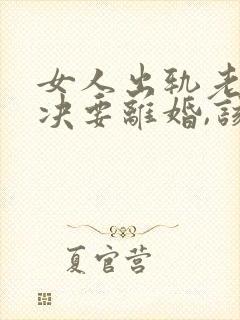 女人出轨老
决要離婚,該
夏官营